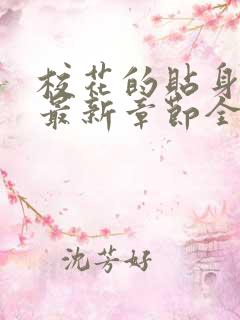 校花的貼身
最新章節全
沈芳好